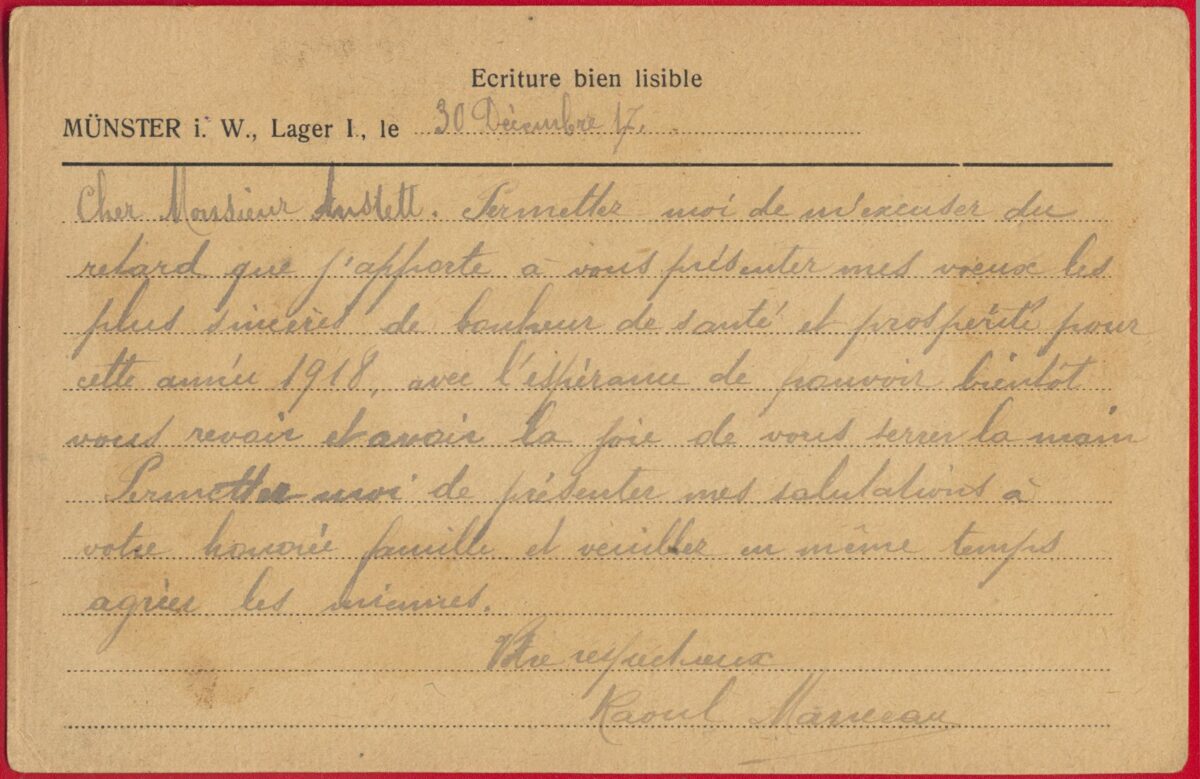 Ecriture bien lisible
MÜNSTER i. W., Lager I, le 30 Décembre 17.
Cher Monsieur Anstett. Permetter moi de m'excuser du
retard que j'apporte à vous présenter mes voeux les
plus sincères de bonheur de santé et prospérité pour
cette année 1918, avec l'espérance de pouvoir bientôt
vous revoir et avoir la joie de vous serrer la main
Permetter moi de présenter mes salutations à
votre honorée famille et veuiller en même temps
agréer les miennes.
Votre respectueux
Raoul